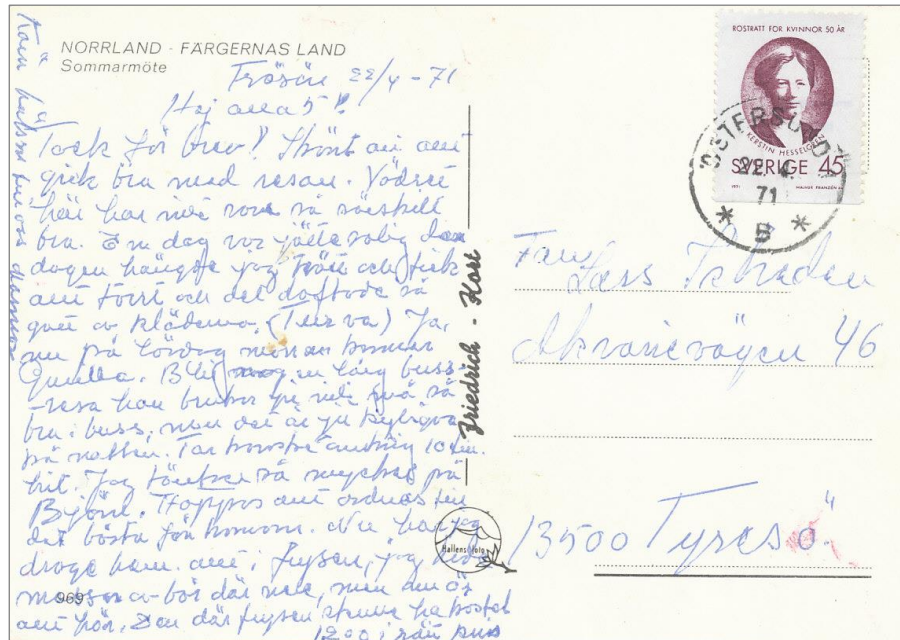 NORRLAND - FÄRGERNAS LAND
Sommarmöte
Frösön 22/4 - 71
Hej alla 5!
Tack för brev! Skönt att allt
gick bra med resan. Vädret
här har inte varit så särskilt
bra. En dag var jättesolig den
dagen hängde jag tvätt och fick
allt torrt och det doftade så
gott av kläderna. Ja,
nu på lördag kommer
Gunilla. Blir en lång buss-
-resa hon brukar ju inte må så
bra i buss, men det är ju
på natten. Tar kanske omkring 10 tim.
bil. Jag tänker så mycket på
Björn. Hoppas allt ordnas till
det bästa för honom. Nu har jag
hem allt i frysen, jag
massor av bär där nere, men nu är
allt här. Den där frysen skulle ha kostat
1200
Kära hälsn till
Friedrich - Kort
Hallens foto
969
RÖSTRÄTT FÖR KVINNOR 50 ÅR
KERSTIN HESSELGREN
SVERIGE 45
1971
MAJVOR FRANZÉN
ÖSTERSUND
22. 4.
71
B
Fam
Lars
46
13500 Tyresö